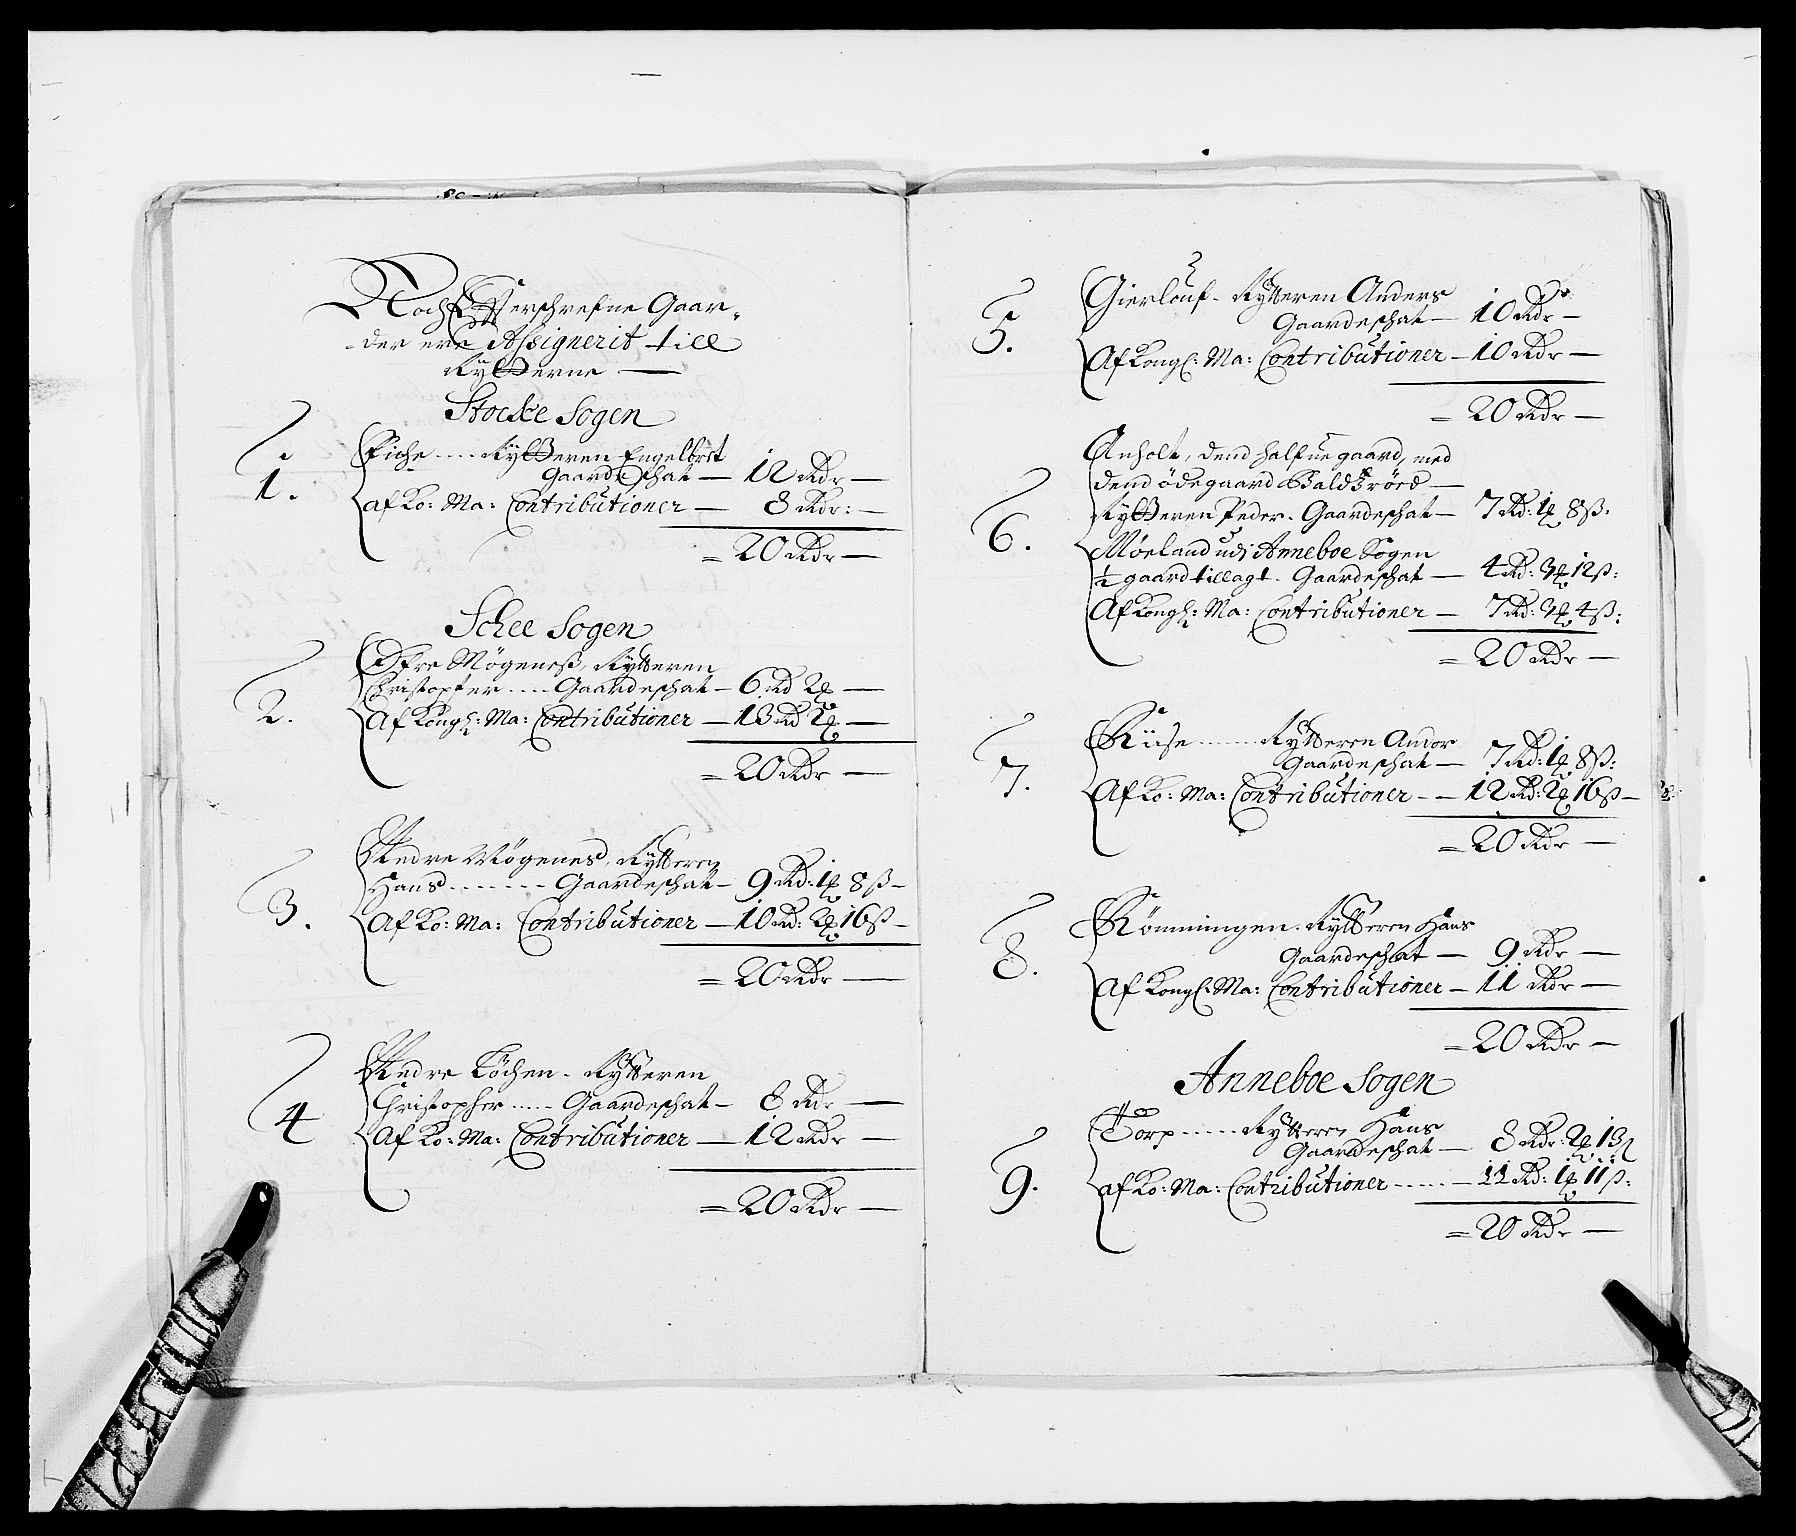 Noch Efterschrefne Gaar-
der ere Assignerit till
Rytterne —
Stocke Sogen
1. Fiche ..... Rytteren Engelbret
Gaardeschat — 12 Rdr —
af Ko: Ma: Contributioner — 8 Rdr: —
= 20 Rdr —
Schee Sogen
2. Øfre Møgeness, Rytteren
Christopfer ..... Gaardeschat — 6 Rd 2 —
Af Kongl: Ma: Contributioner — 13 Rd 2 —
= 20 Rdr —
3. Nedre Møgenes, Rytteren
Hans ....... Gaardeschat — 9 Rd: 1 8 ß —
Af Ko: Ma: Contributioner — 10 Rd: 2 16 ß —
= 20 Rdr —
4 Nedre Köchen - Rytteren
Christopher ..... Gaardeschat — 8 Rdr —
Af Ko: Ma: Contributioner — 12 Rdr —
= 20 Rdr —
5. Gierlöuf - Rytteren Anders
Gaardeschat — 10 Rdr —
Af Kongl: Ma: Contributioner — 10 Rdr —
= 20 Rdr —
Anholt, dend halfue gaard, med
dend ödegaard
6. Rytteren Peder - Gaardeschat — 7 Rd: 1 8 ß:
Møeland udi Anneboe Sogen
½ gaard tillagt - Gaardeschat — 4 Rd: 3 12 ß:
Af Kongl: Ma: Contributioner — 7 Rd: 3 4 ß:
= 20 Rdr —
7. Riise ...... Rytteren Andor
Gaardeschat — 7 Rd: 1 8 ß:
Af Ko: Ma: Contributioner - — 12 Rd: 2 16 ß —
= 20 Rdr —
8. Römmingen - Rytteren Hans
Gaardeschat — 9 Rdr —
Af Kongl: Ma: Contributioner — 11 Rdr —
= 20 Rdr —
Anneboe Sogen
9. Torp ...... Rytteren Hans
Gaardeschat — 8 Rdr: 2 13 ß
af Ko: Ma: Contributioner ...... — 11 Rd: 1 11 ß:
= 20 Rdr —